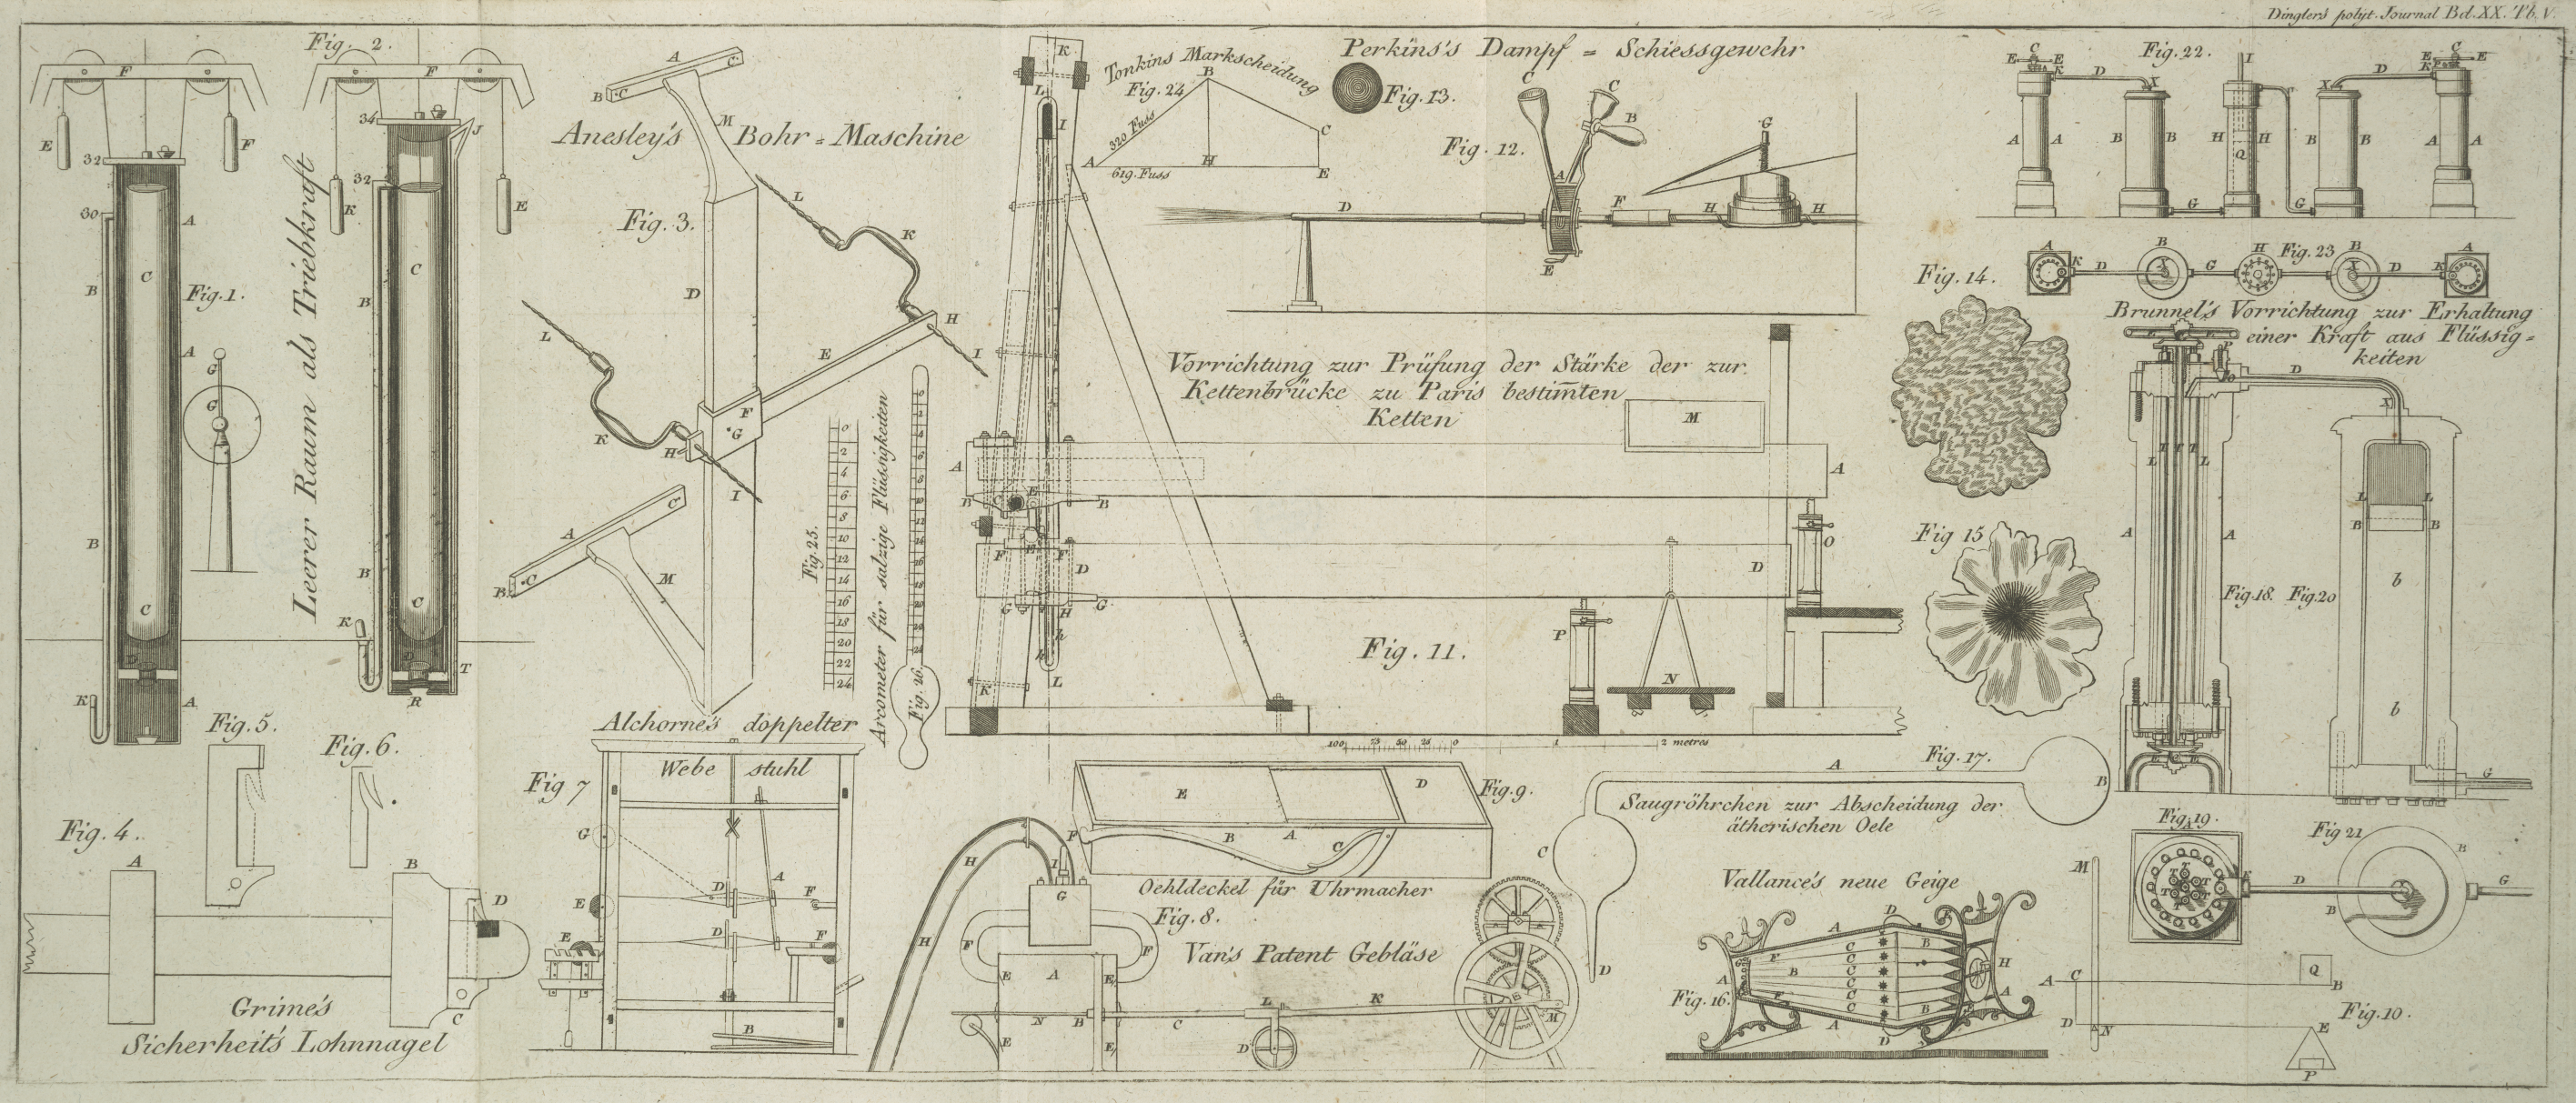 Dinglers polyt. Journal Bd. XX. Tb. V.
Fig. 2.
Leerer Raum als Triebkraft
Fig. 1.
Anesley's Bohr = Maschine
Fig. 3.
Tonkins Markscheidung
Fig. 24
320 Fuss
619. Fuss
Perkins's Dampf = Schiessgewehr
Fig. 13.
Fig. 12.
Fig. 22.
Fig. 23
Fig. 14.
Brunnel's Vorrichtung zur Erhaltung
einer Kraft aus Flüssig =
keiten
Vorrichtung zur Prüfung der Stärke der zur
Kettenbrücke zu Paris bestimten
Ketten
Fig. 11.
100 75 50 25 0 1 2 metres
Fig. 25.
0
2
4
6
8
10
12
14
16
18
20
22
24
Areometer für salzige Flüssigkeiten
Fig. 26.
Fig 15
Fig. 18. Fig. 20
Fig. 5.
Fig. 6.
Fig. 4.
Grime's
Sicherheit's Lohnnagel
Alchorne's doppelter
Webe stuhl
Fig 7
Fig. 9.
Oehldeckel für Uhrmacher
Fig. 8.
Van's Patent Gebläse
Fig. 17.
Saugröhrchen zur Abscheidung der
ätherischen Oele
Vallance's neue Geige
Fig. 16.
Fig. 19.
Fig 21
Fig. 10.